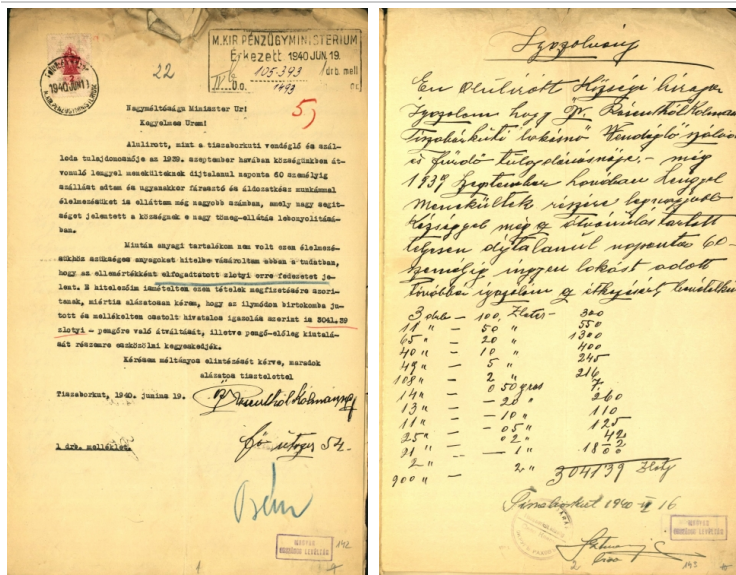 M. KIR. PÉNZÜGYMINISTERIUM
Érkezett 1940 JUN. 19.
105-393 drb. mell
IV. Ü.o. 1493
1940 JUN 1
22
5)
Nagyméltóságu Miniszter Ur!
Kegyelmes Uram!
Alulirott, mint a tiszaborkuti vendéglő és szál-
loda tulajdonosnője az 1939. szeptember havában községünkben át-
vonuló lengyel menekülteknek díjtalanul naponta 60 személyig
szállást adtam és ugyanakkor fárasztó és áldozatkész munkámmal
élelmezésüket is elláttam még nagyobb számban, amely nagy segit-
séget jelentett a községnek e nagy tömeg-ellátás lebonyolitásá-
ban.
Miután anyagi tartalékom nem volt ezen élelmezé-
sükhöz szükséges anyagokat hitelbe vásároltam abban a tudatban,
hogy az ellenértékként elfogadtatott zlotyi erre fedezetet je-
lent. E hitelezőim ismételten ezen tételek megfizetésére szori-
tanak, miértis alázatosan kérem, hogy az ilymódon birtokomba ju-
tott és mellékelten csatolt hivatalos igazolás szerint is 3041.39
zlotyi - pengőre való átváltását, illetve pengő-előleg kiutalá-
sát részemre eszközölni kegyeskedjék.
Kérésem méltányos elintézését kérve, maradok
alázatos tisztelettel
Tiszaborkut, 1940. junius 19.
Fő utca 54.
1 drb. melléklet.
MAGYAR
ORSZÁGOS LEVÉLTÁR
142
Igazolvány
Én alulirott Községi biró
Igazolom hogy
Vendéglő
és fürdő tulajdonosnője, - még
1939 Szeptember havában Lengyel
Menekültek részére legnagyobb
községgel még g átvonulás tartott
teljesen díjtalanul naponta 60-
személyig ingyen lakást adott
Továbbá igazolom
3 drb - 100, Zloter - 300
11 " - 50 " 550
65 " - 20 " 1300
40 " - 10 " 400
49 " - 5 " 245
108 " - 2 " 216
14 " - 0 50 gros 7.
13 " - 20 " 260
11 " - 10 " 110
25 " - 05 " 125
21 " - 02 " 42
2 " - 1 "
900 " 2 " 3041'39 Zloty
Tiszaborkút 1940 VI 16
biró
MAGYAR
ORSZÁGOS LEVÉLTÁR
143